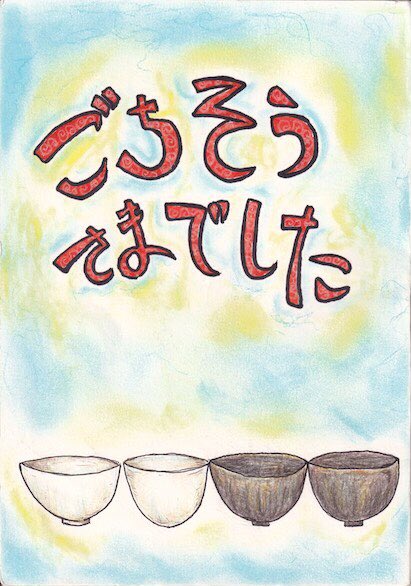 ごちそう
さまでした